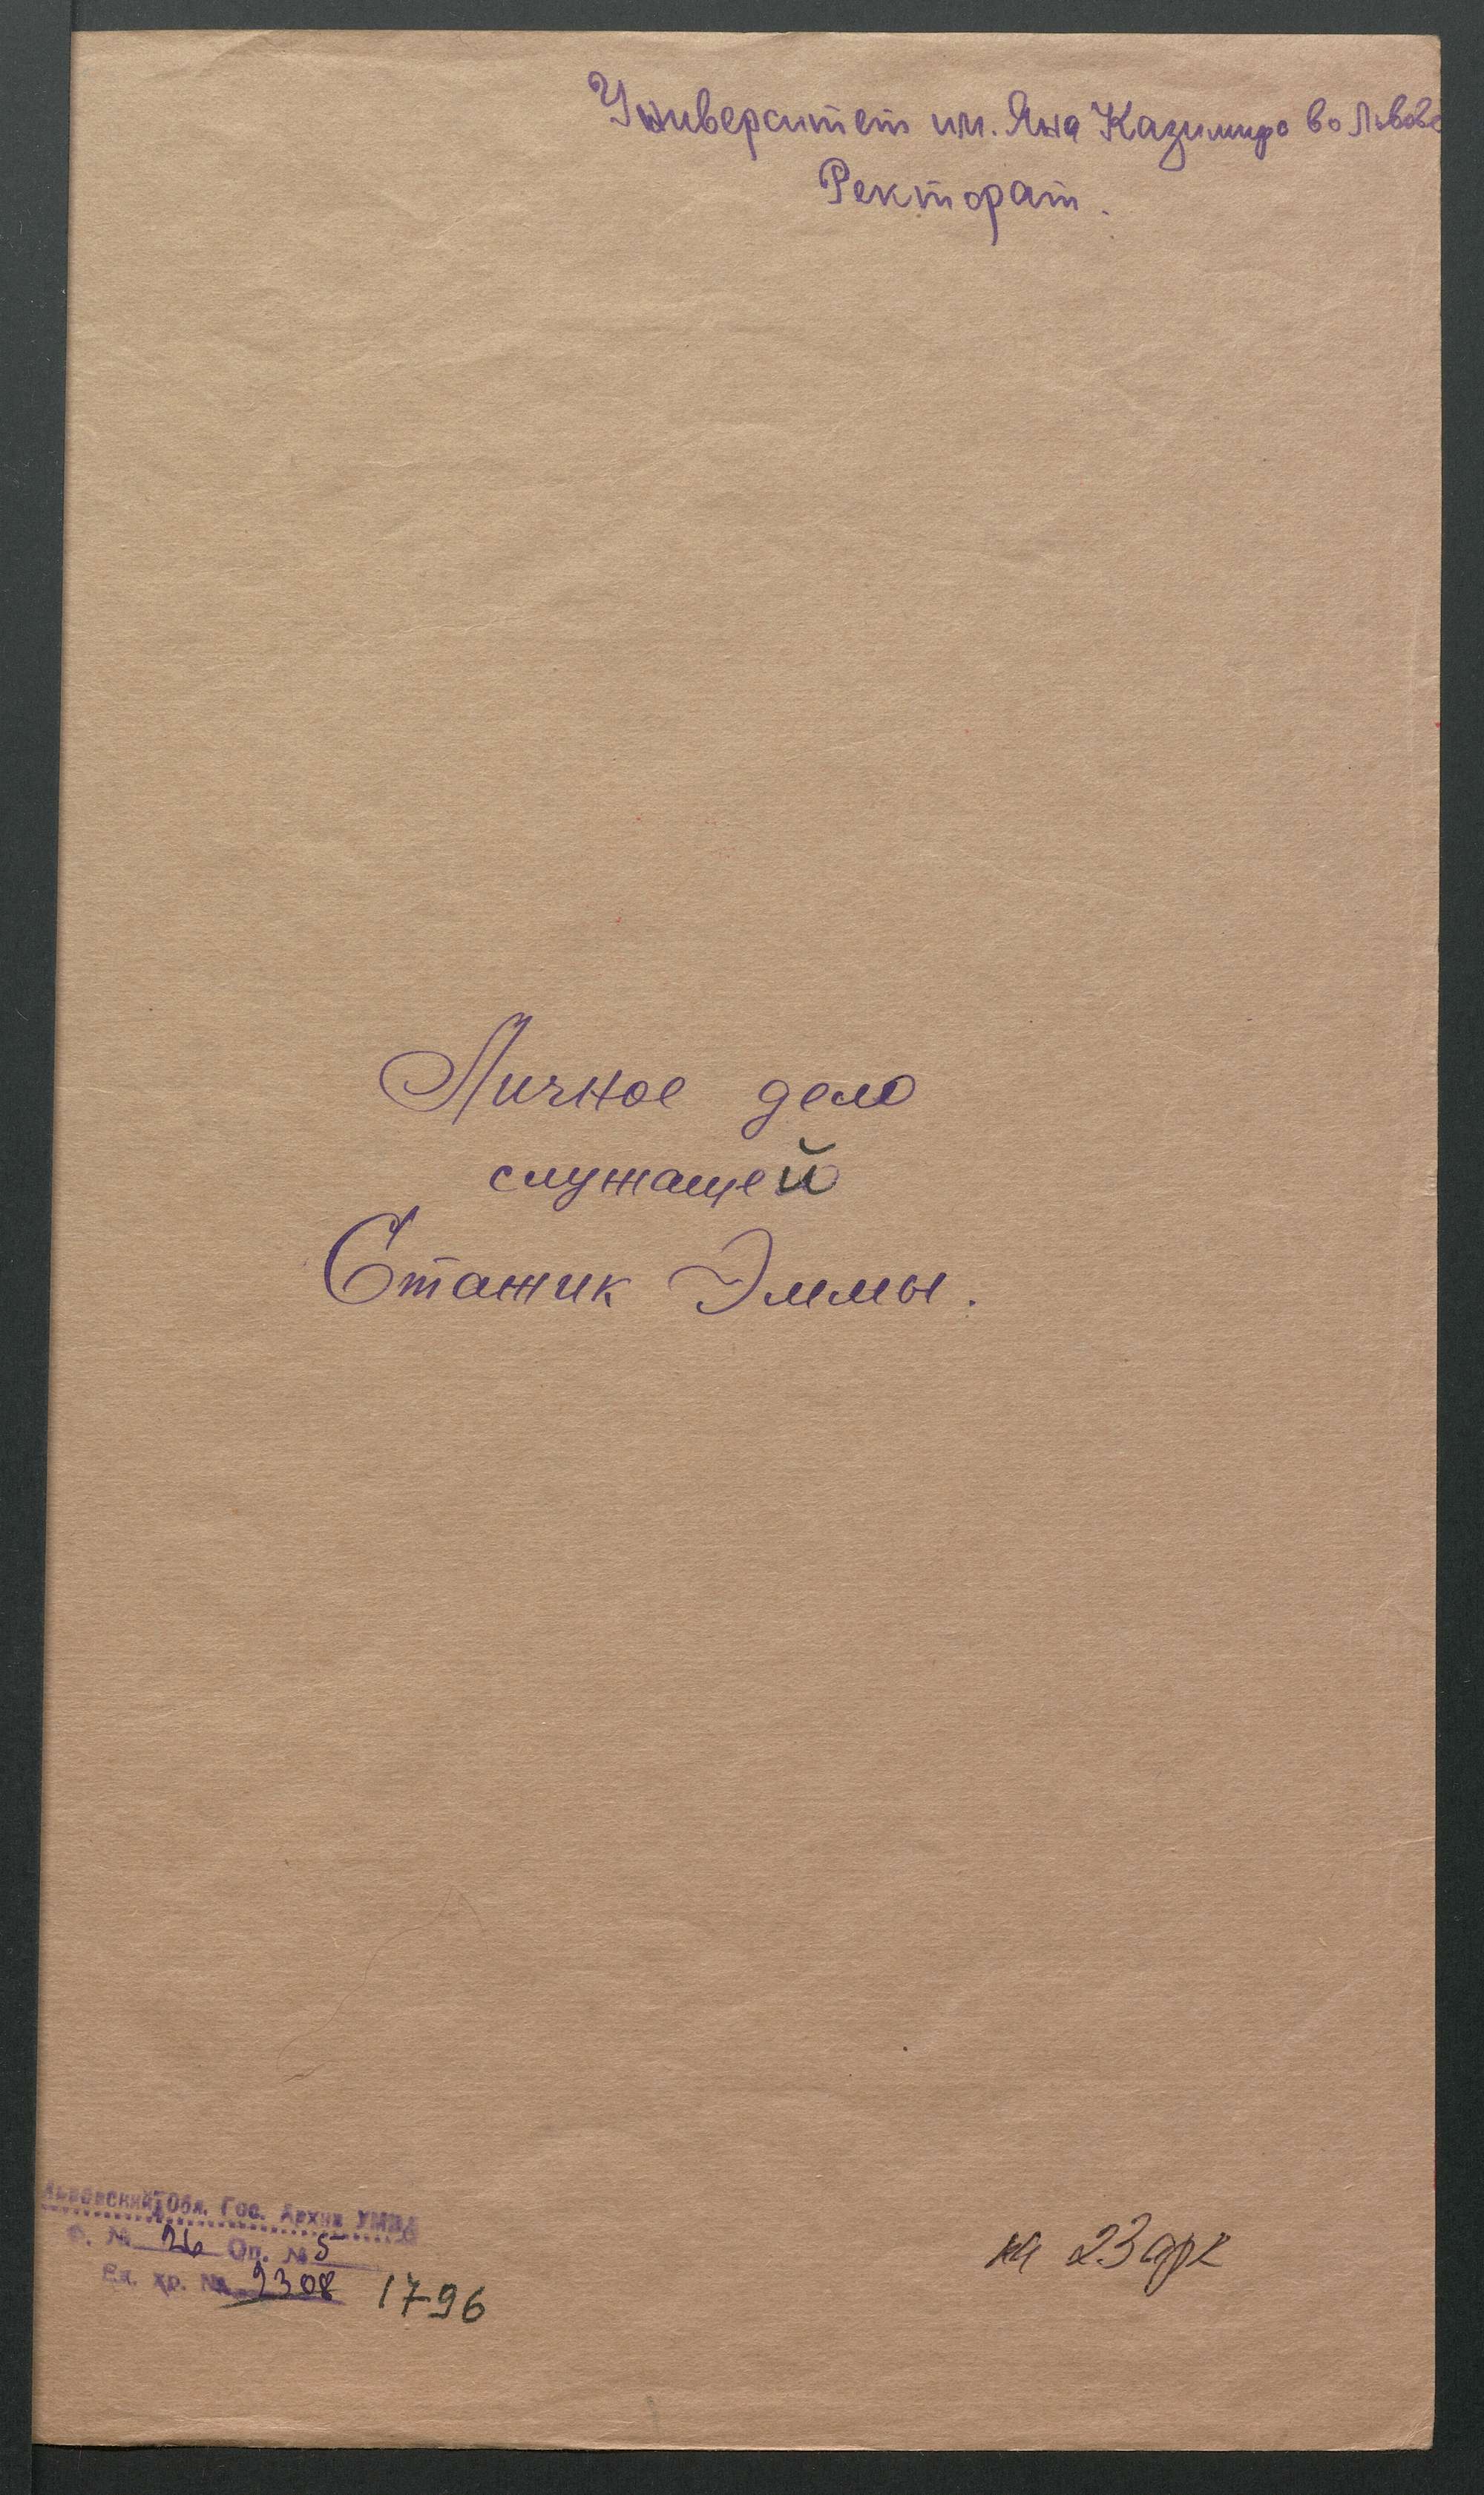 Университет им. Яна Казимира во Львове
Ректорат.
Личное дело
служащей
Стажик Эммы.
Львовский Обл. Гос. Архив УМВД
Ф. № 26 Оп. № 5
Ед. хр. № 2308 1796
на 23 арк